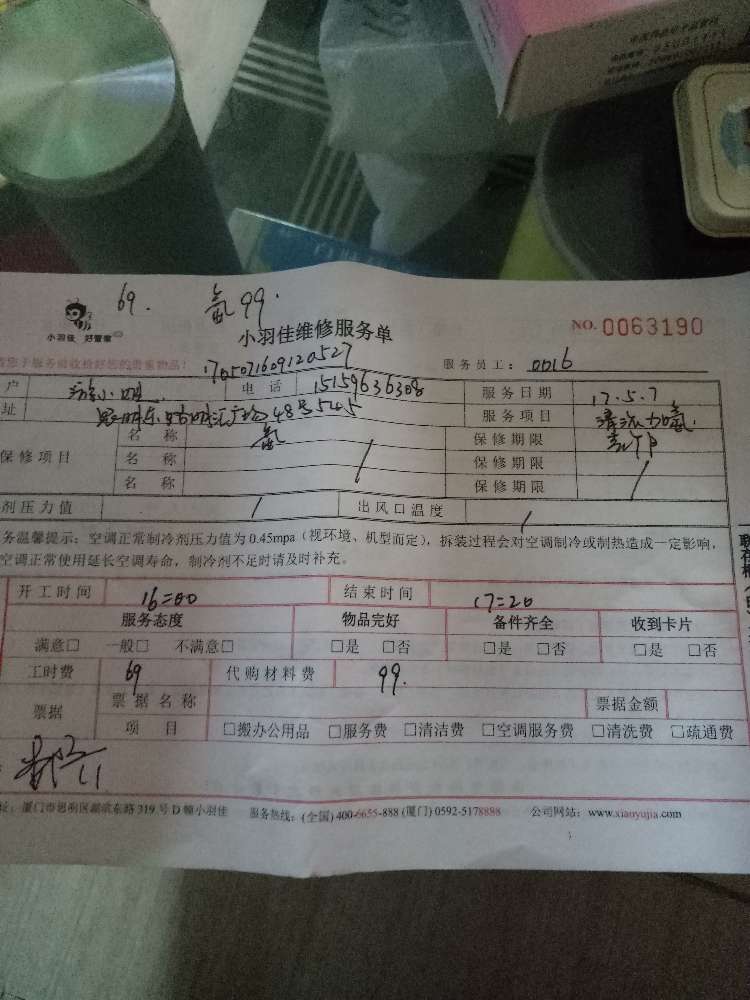 69. 氟99.
小羽佳 好管家
小羽佳维修服务单
NO. 0063190
您予服务前收捡好您的贵重物品!
1705071609120527
服务员工: 0016
户 小姐 电话 15159636308 服务日期 17.5.7
址 48号545 服务项目 清洗加氟
保修项目 名称 氟 保修期限
名称 保修期限
名称 保修期限
剂压力值 / 出风口温度 /
务温馨提示:空调正常制冷剂压力值为0.45mpa(视环境、机型而定),拆装过程会对空调制冷或制热造成一定影响,
空调正常使用延长空调寿命,制冷剂不足时请及时补充。
开工时间 16=00 结束时间 17=20
服务态度 物品完好 备件齐全 收到卡片
满意□ 一般□ 不满意□ □是 □否 □是 □否 □是 □否
工时费 69 代购材料费 99.
票据 票据名称 票据金额
项目 □搬办公用品 □服务费 □清洁费 □空调服务费 □清洗费 □疏通费
址:厦门市思明区湖滨东路319号D幢小羽佳 服务热线:(全国)400-6655-888(厦门)0592-5178888 公司网站:www.xiaoyujia.com